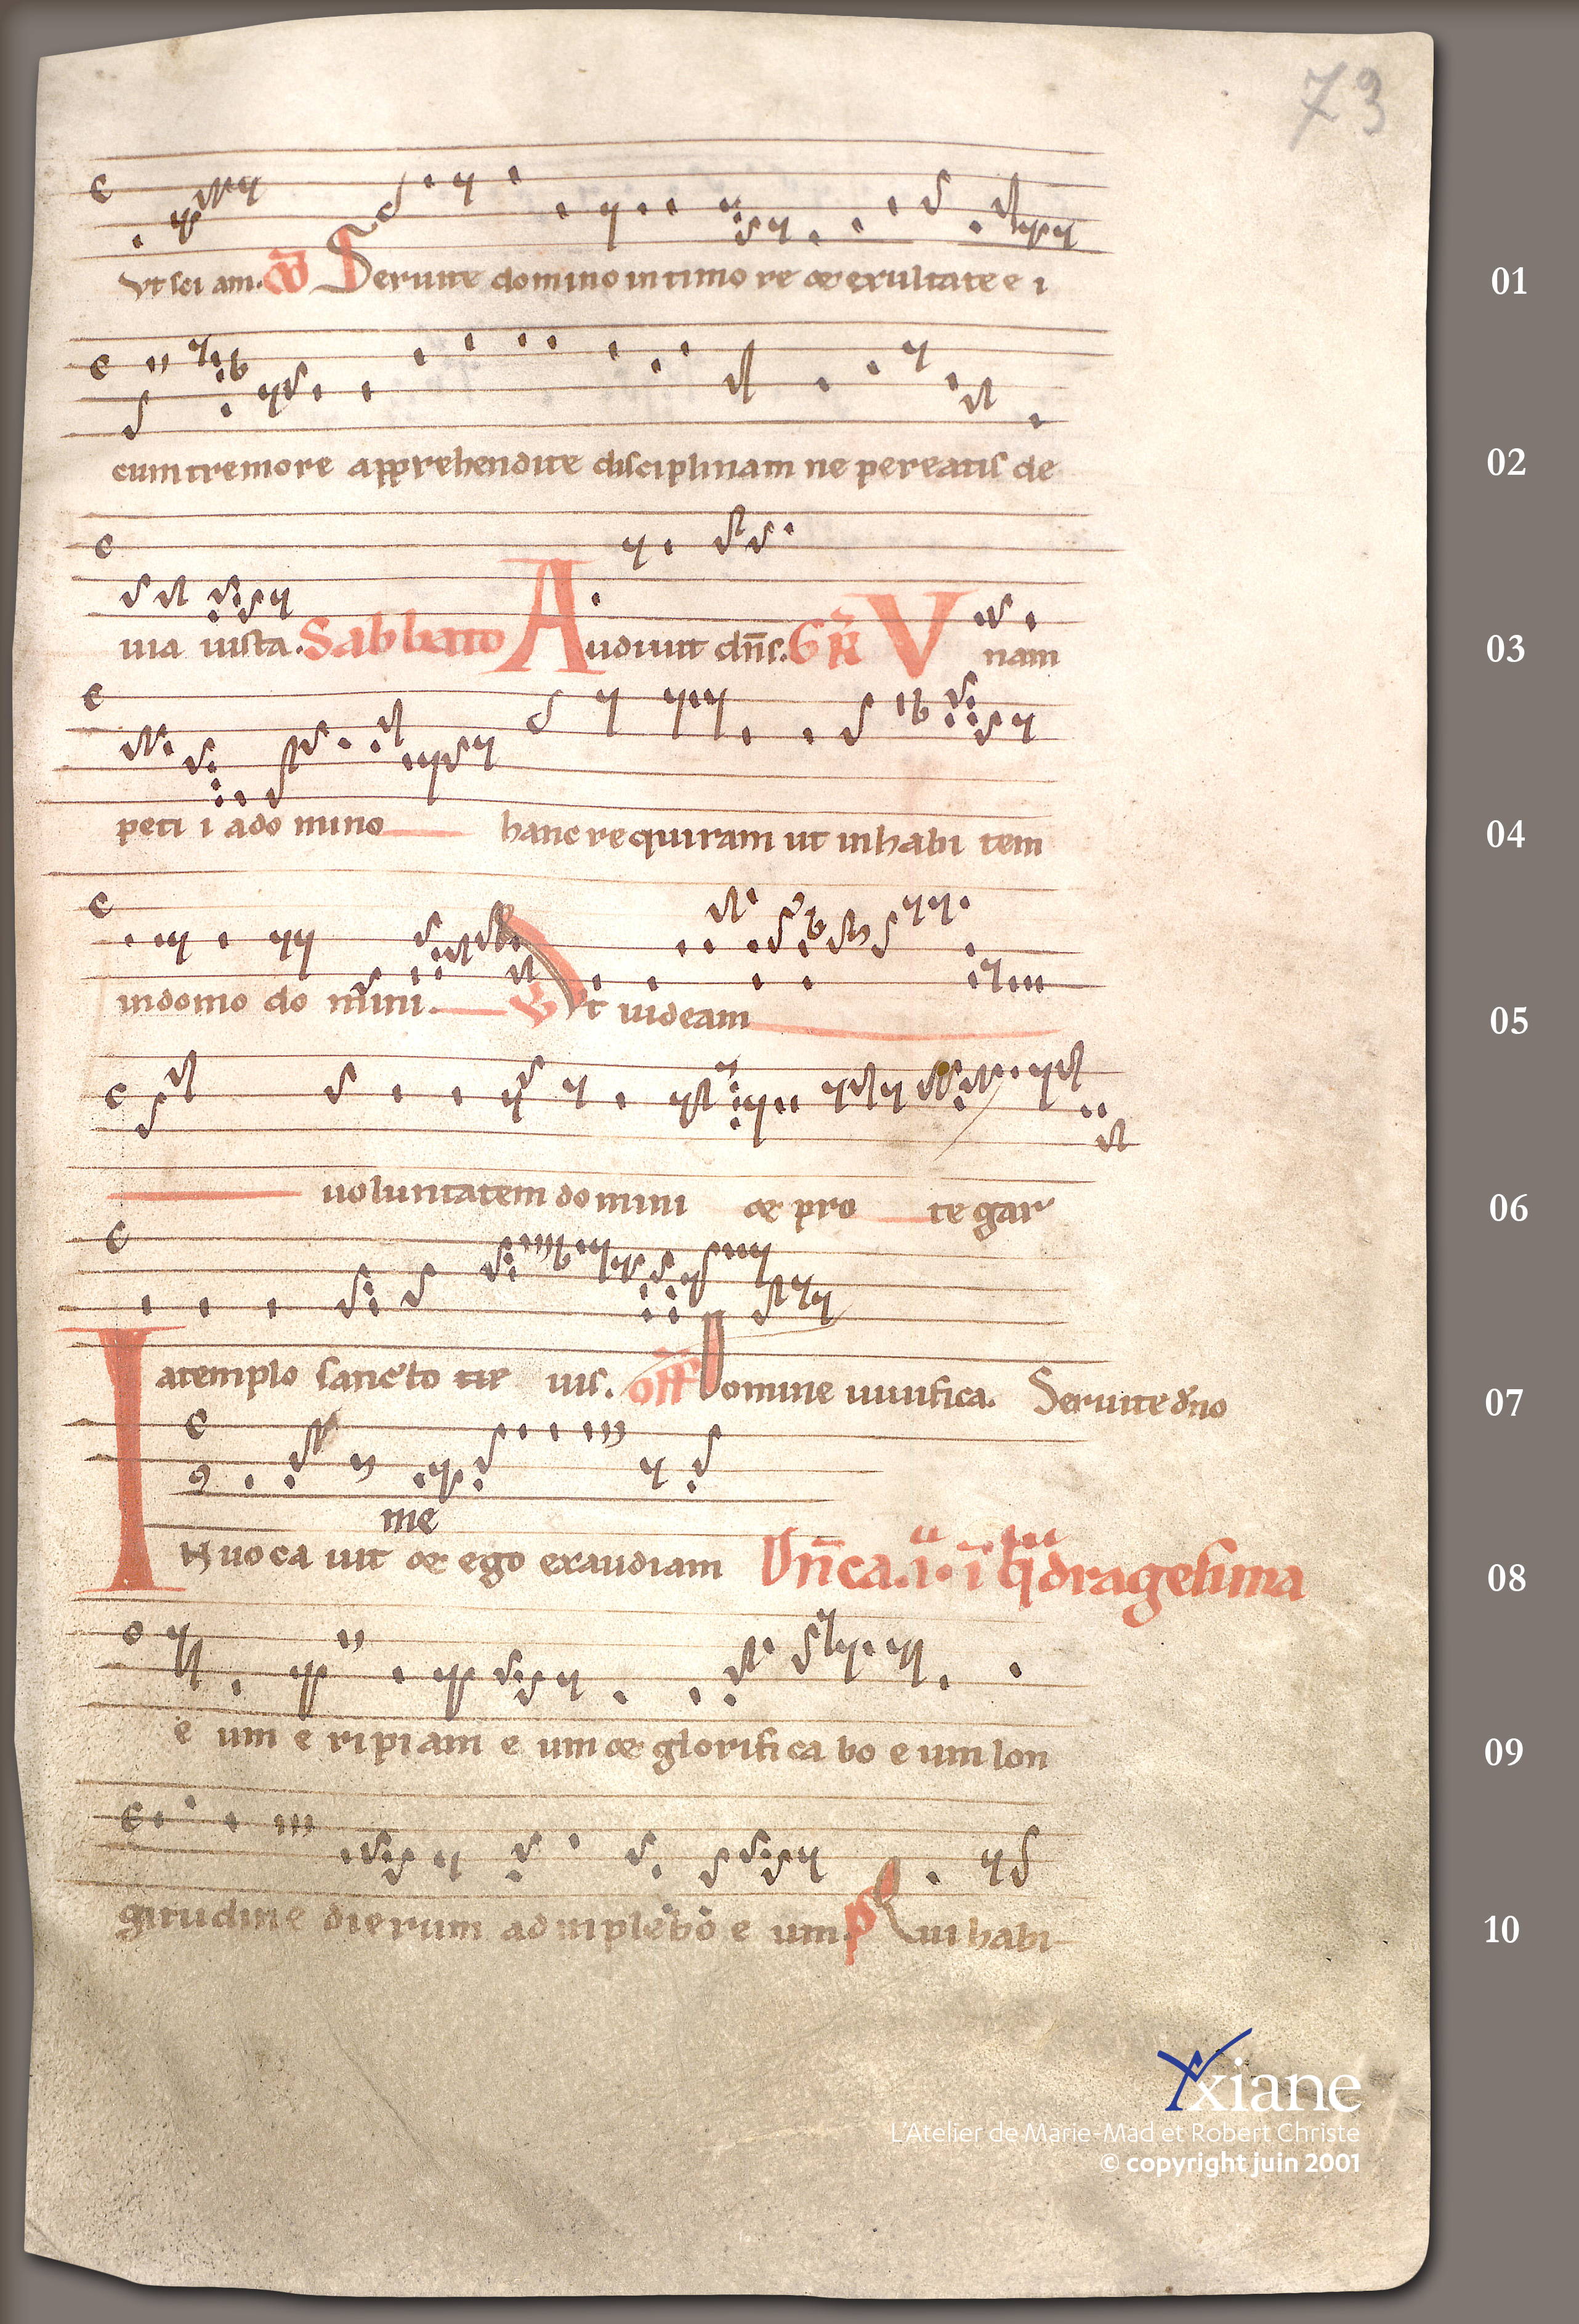 73
c
vt sci am. Co Seruite domino in timo re & exultate e i
01
c
cum tremore apprehendite disciplinam ne pereatis de
02
c
uia iusta. Sabbato Audiuit dñs. GR V nam
03
c
peti i a do mino hanc requiram ut inhabi tem
04
c
in domo do mini. Vt uideam
05
c
uoluntatem domini & pro te gar
06
c
a templo sancto eius. off Domine uiuifica. Seruite dño
07
c
me
INuoca uit & ego exaudiam Dñica. i. i q̄dragesima
08
c
e um e ripiam e um & glorifica bo e um lon
09
c
gitudine dierum adimplebo e um. p Qui habi
10
xiane
L'Atelier de Marie-Mad et Robert Christe
© copyright juin 2001